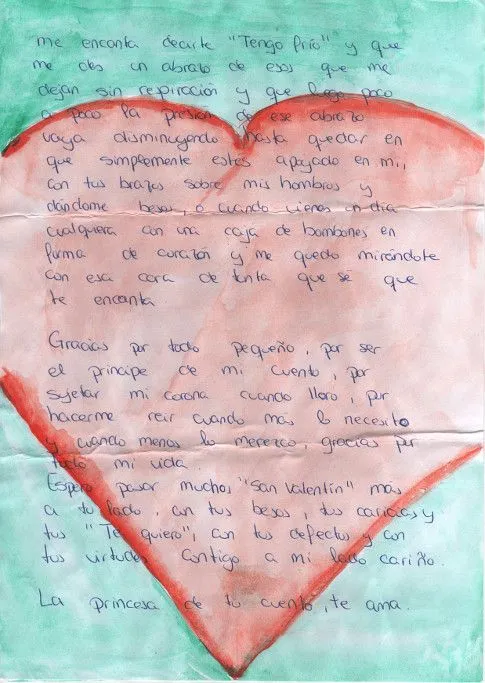 me encanta decirte "Tengo frío" y que
me des un abrazo de esos que me
dejan sin respiración y que luego poco
a poco la presión de ese abrazo
vaya disminuyendo hasta quedar en
que simplemente estés apoyado en mi,
con tus brazos sobre mis hombros y
dándome besos, o cuando vienes un día
cualquiera con una caja de bombones en
forma de corazón y me quedo mirándote
con esa cara de tonta que sé que
te encanta
Gracias por todo pequeño, por ser
el príncipe de mi cuento, por
sujetar mi corona cuando lloro, por
hacerme reir cuando más lo necesito
y cuando menos lo merezco, gracias por
todo mi vida.
Espero pasar muchos "San Valentín" más
a tu lado, con tus besos, tus caricias y
tus "Te quiero", con tus defectos y con
tus virtudes contigo a mi lado cariño.
La princesa de tu cuento, te ama.